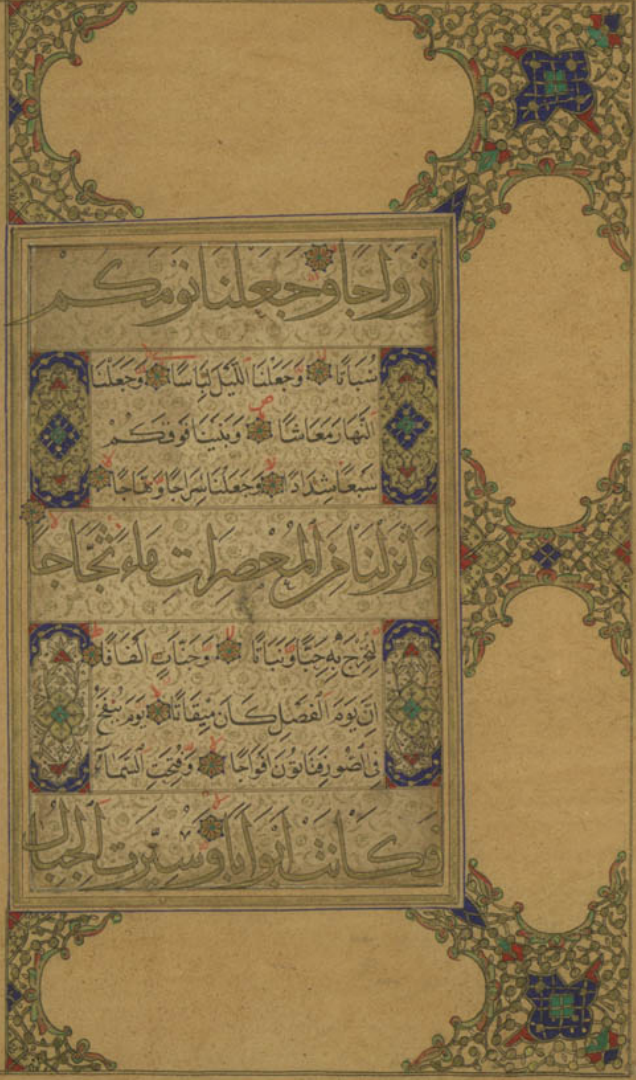 أَزْوَاجًا وَجَعَلْنَا نَوْمَكُمْ
سُبَاتًا وَجَعَلْنَا اللَّيْلَ لِبَاسًا وَجَعَلْنَا
النَّهَارَ مَعَاشًا وَبَنَيْنَا فَوْقَكُمْ
سَبْعًا شِدَادًا وَجَعَلْنَا سِرَاجًا وَهَّاجًا
وَأَنْزَلْنَا مِنَ الْمُعْصِرَاتِ مَاءً ثَجَّاجًا
لِنُخْرِجَ بِهِ حَبًّا وَنَبَاتًا وَجَنَّاتٍ أَلْفَافًا
إِنَّ يَوْمَ الْفَصْلِ كَانَ مِيقَاتًا يَوْمَ يُنْفَخُ
فِي الصُّورِ فَتَأْتُونَ أَفْوَاجًا وَفُتِحَتِ السَّمَاءُ
فَكَانَتْ أَبْوَابًا وَسُيِّرَتِ الْجِبَالُ